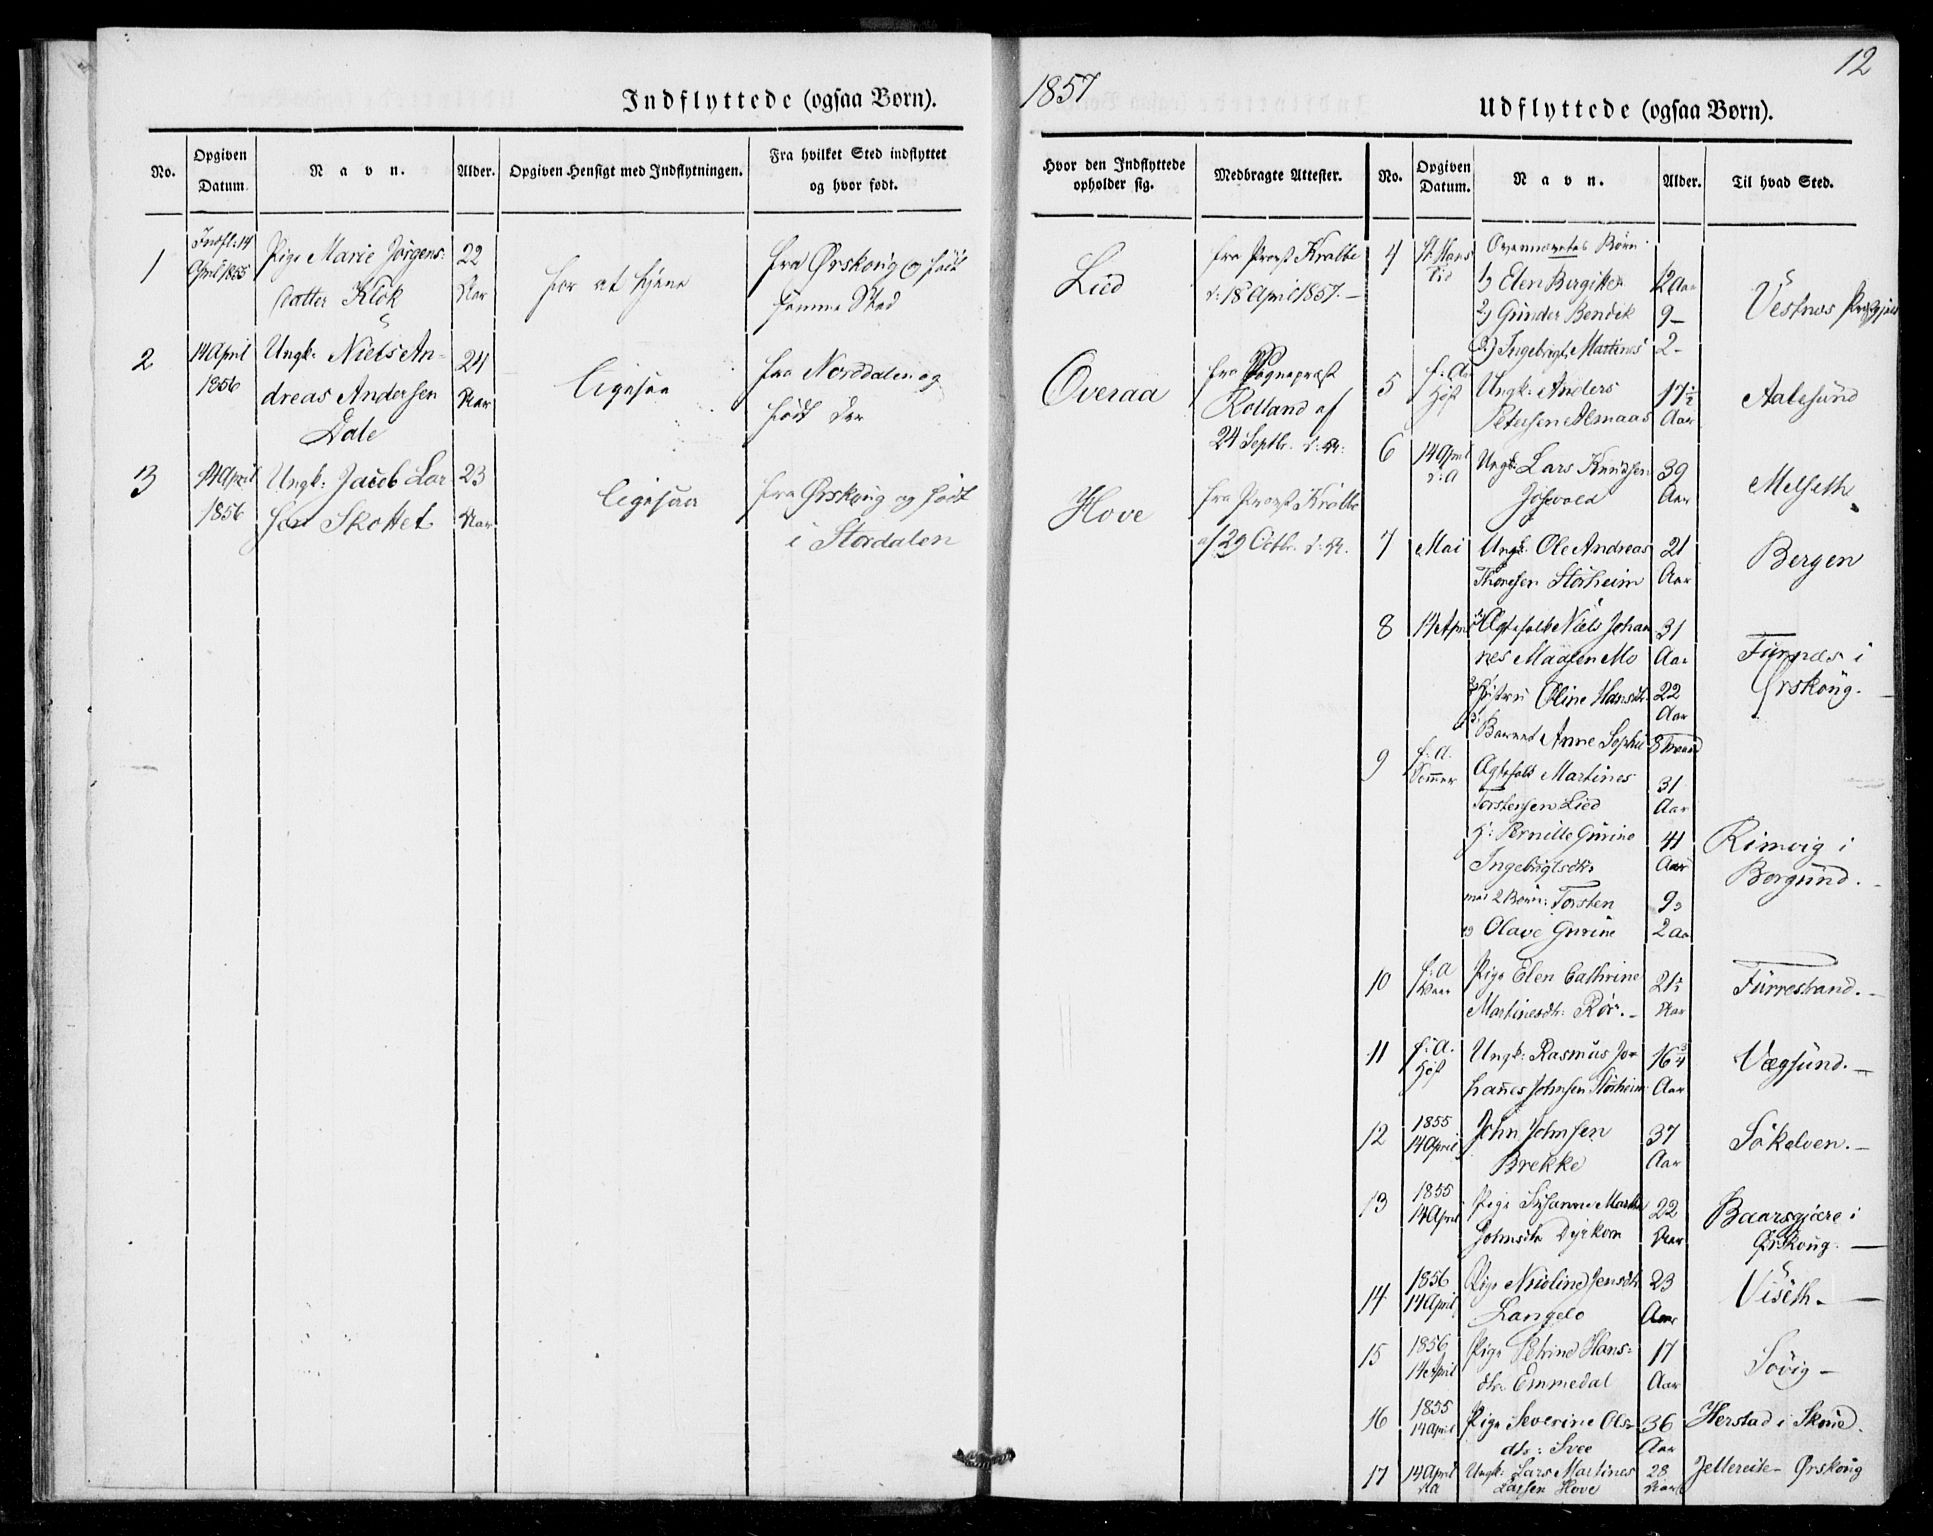 12
1857
Indflyttede (ogsaa Børn).
Udflyttede (ogsaa Børn).
No.
Opgiven Datum.
Navn.
Alder.
Opgiven Hensigt med Indflytningen.
Fra hvilket Sted indflyttet og hvor født.
Hvor den Indflyttede opholder sig.
Medbragte Attester.
No.
Opgiven Datum.
Navn.
Alder.
Til hvad Sted.
1
Indfl. 14
April 1855
Pige Marie Jørgens-
datter Klok
22
Aar
for at tjene
fra Ørskoug og født
samme Sted
Lied
fra Provst Krabbe
d: 18 April 1857.
2
14 April
1856
Ungk: Niels An-
dreas Andersen
Dale
24
Aar
ligesaa
fra Norddalen og
født der
Overaa
fra Sognepræst
Rolland af
24 Septbr. d: A:
3
14 April
1856
Ungk: Jacob Lar
sen Skottet
23
Aar
ligesaa
fra Ørskoug og født
i Stordalen
Hove
fra Provst Krabbe
af 29 Octbr. d: A:
4
St. Hans
Tid
Ovennævntes Børn
1) Elen Bergitte
12 Aar
2) Gunder Bendik
9 -
3) Ingebrigt Martinus
2 -
Vestnes Præstgjeld
5
f: A:
Høst
Ungk: Anders
Petersen Almaas
17½
Aar
Aalesund
6
14 April
d: A
Ungk: Lars Knudsen
39
Aar
Melseth
7
Mai
Ungk: Ole Andreas
Thoresen Storheim
21
Aar
Bergen
8
14 April
Ægtefolk Niels Johan
nes Madsen Mo
31
Aar
Hustru Oline Hansdt.
22
Aar
Barnet Anne Sophie
Furnæs i
Ørskoug.
9
f: A.
Sommer
Ægtefolk Martines
Torstensen Lied
31
Aar
H: Pernille Gurine
Ingebrigtsdtr
41
Aar
med 2 Børn: Torsten
9
og Olave Gurine
2 Aar
Rimvig i
Borgund.
10
f: A
Vaar
Pige Elen Cathrine
Martinesdtr: Rør.
21½
Aar
Furrestrand.
11
f: A.
Høst
Ungk: Rasmus Jo-
hannes Johnsen Storheim
16¾
Aar
Vægsund.
12
1855
14 April
John Johnsen
Brekke
37
Aar
Søkelven.
13
1855
14 April
Pige Susanne Martha
Johnsdtr Dyrkorn
22
Aar
Baarsgjære i
Ørskoug.
14
1856
14 April
Pige Nicoline Jensdtr
Langelo
23
Aar
Viseth.
15
1856
14 April
Pige Petrine Hans-
dtr Emmedal
17
Aar
Søvig
16
1855
14 April
Pige Severine Ols-
dtr: Svee
36
Aar
Herstad i Skoue.
17
14 April
d A
Ungk: Lars Martines
Larsen Hove
28
Aar
Jellereite Ørskoug